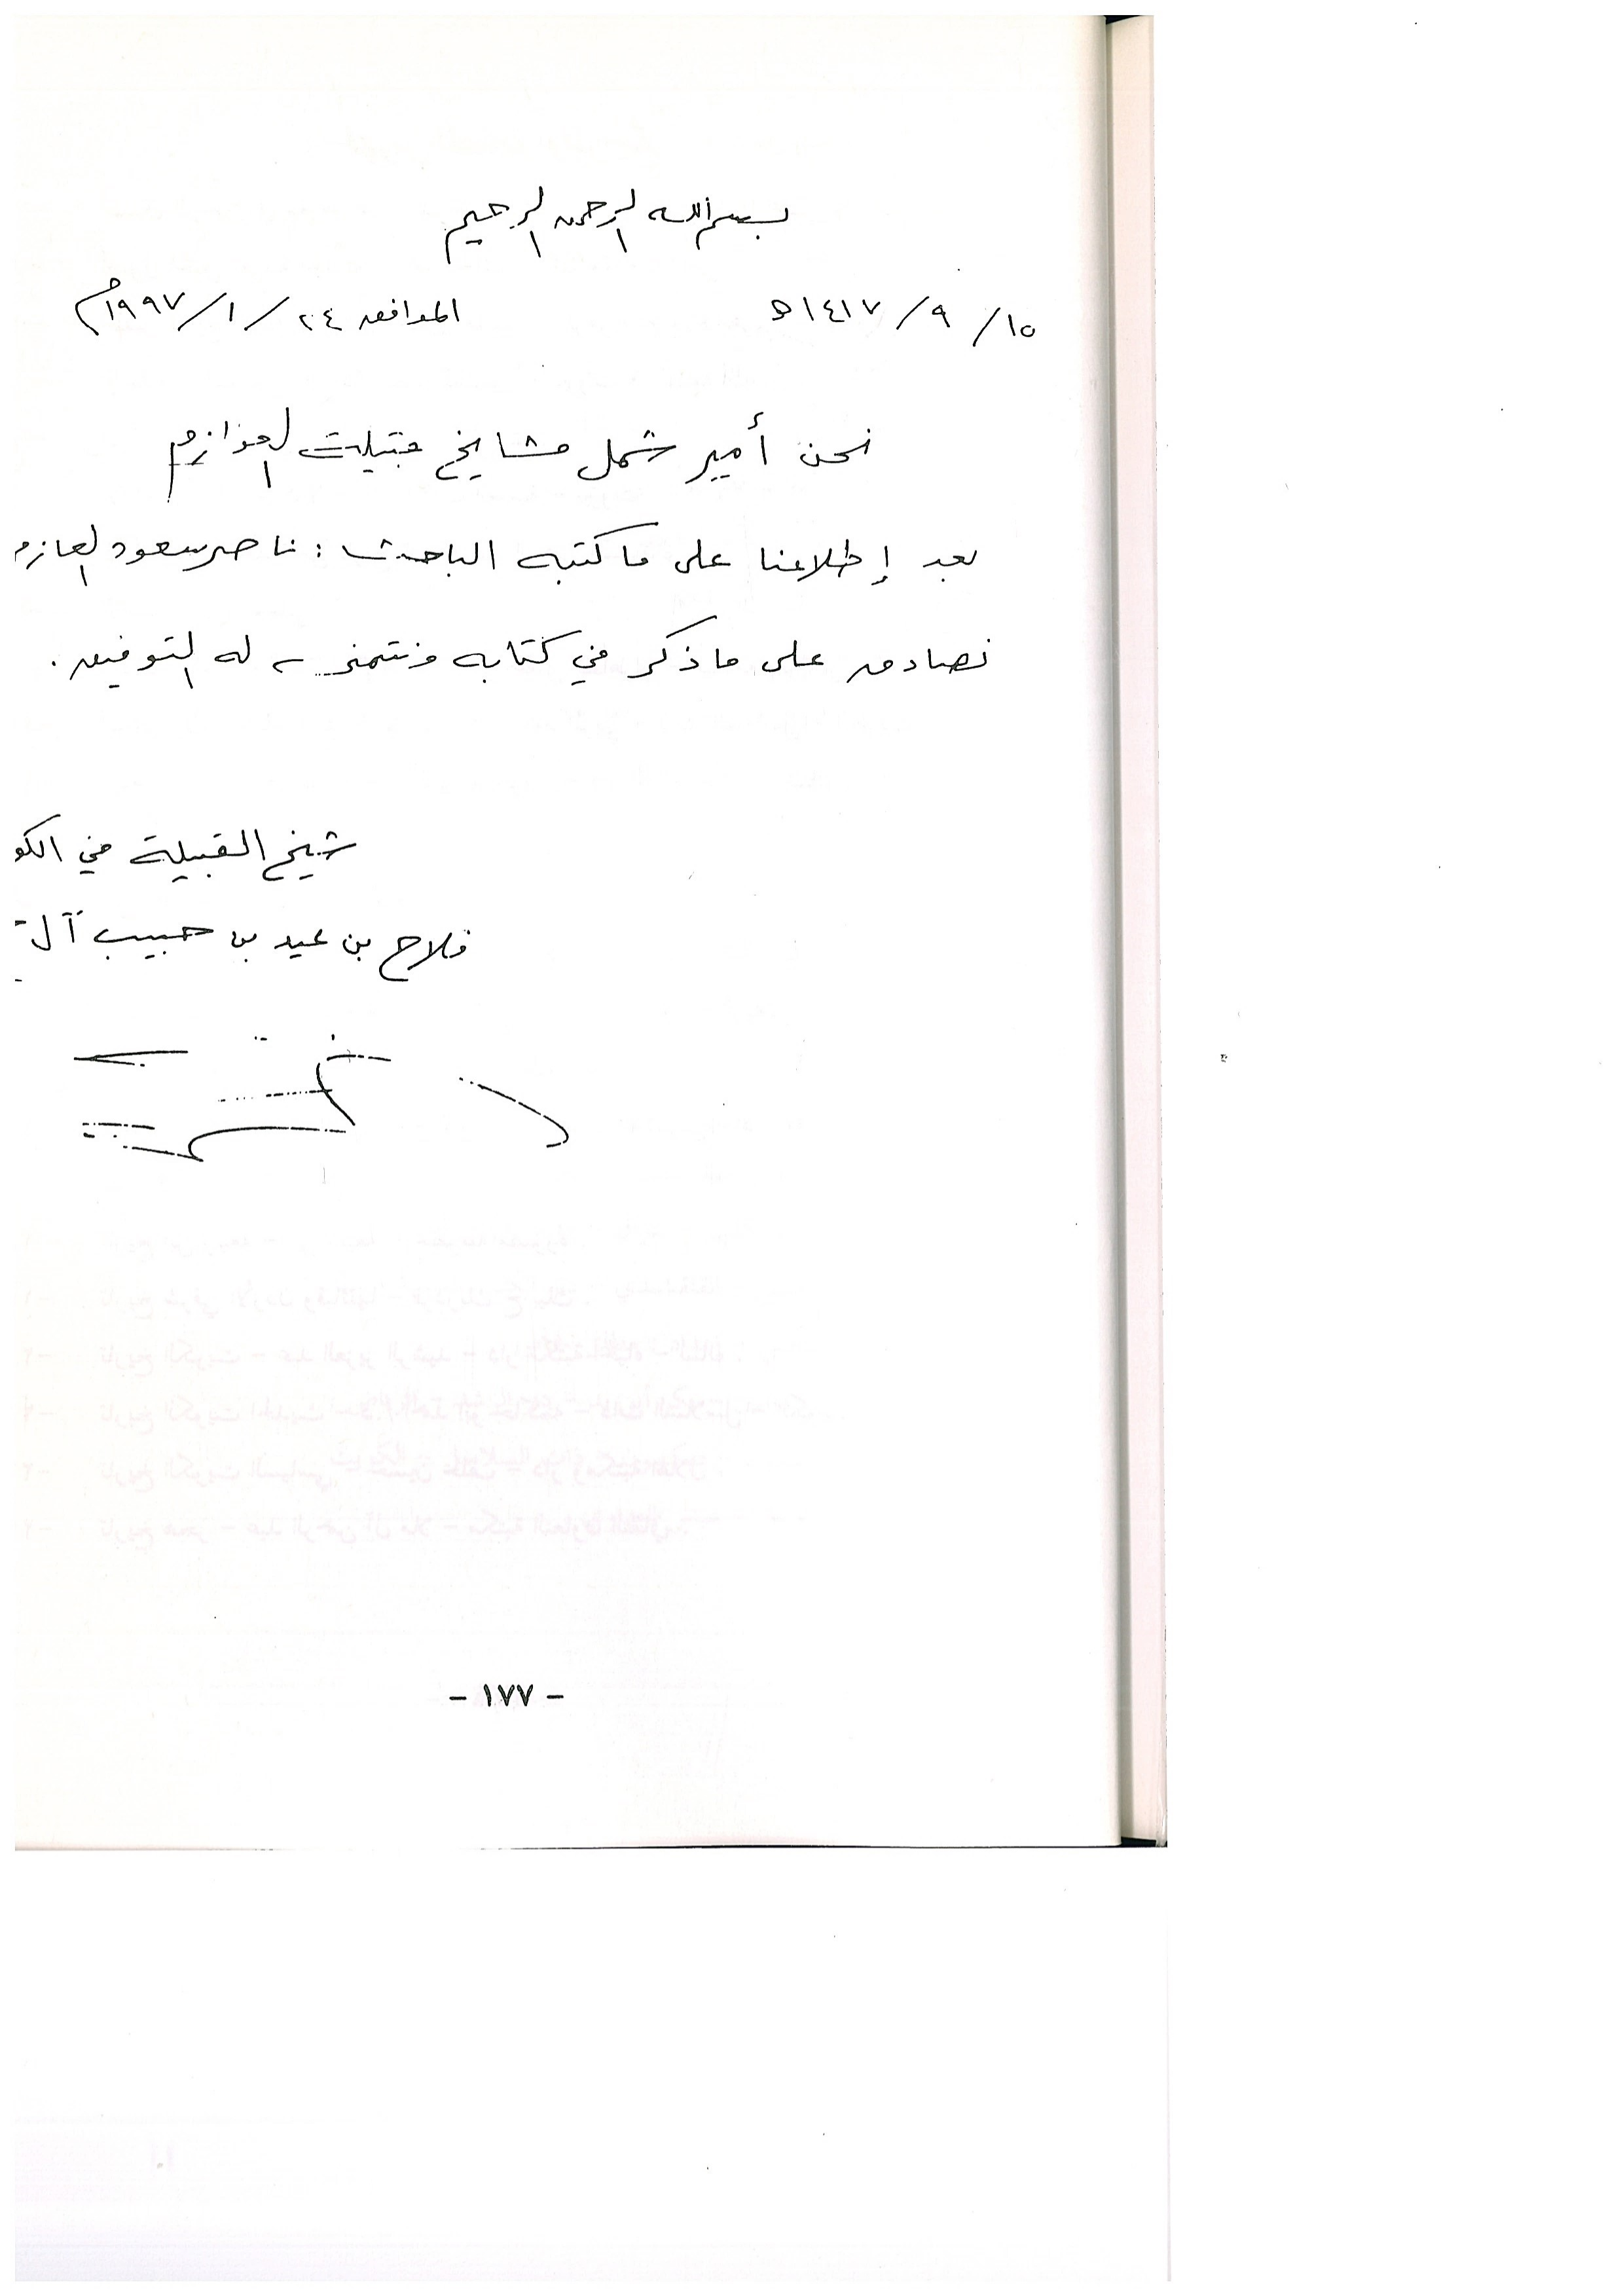 بسم الله الرحمن الرحيم
١٥/ ٩/ ١٤١٧ه الموافق ٢٤/ ١/ ١٩٩٧م
نحن أمير شمل مشايخ قبيلة العوازم
بعد إطلاعنا على ما كتبه الباحث : ناصر سعود العازم
نصادق على ما ذكر في كتابه ونتمنى له التوفيق .
شيخ القبيلة في الكو
فلاح بن عيد بن حبيب آل
- ١٧٧ -